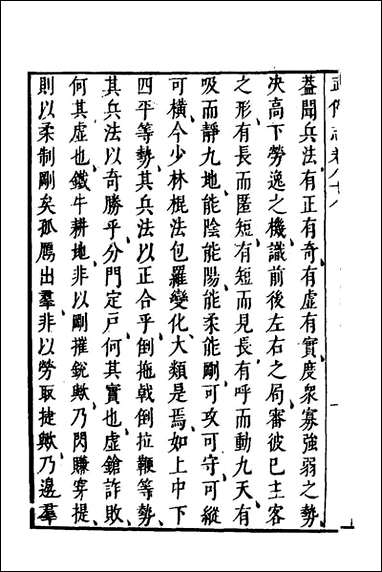 武備志卷八十八
蓋聞兵法有正有奇有虛有實度衆寡強弱之勢
決高下勞逸之機識前後左右之局審彼已主客
之形有長而匿短有短而見長有呼而動九天有
吸而靜九地能陰能陽能柔能剛可攻可守可縱
可橫今少林棍法包羅變化大類是焉如上中下
四平等勢其兵法以正合乎倒拖戟倒拉鞭等勢
其兵法以奇勝乎分門定戶何其實也虛鎗詐敗
何其虛也鐵牛耕地非以剛摧銳歟乃閃賺穿提
則以柔制剛矣孤鴈出羣非以勞取捷歟乃邊羣